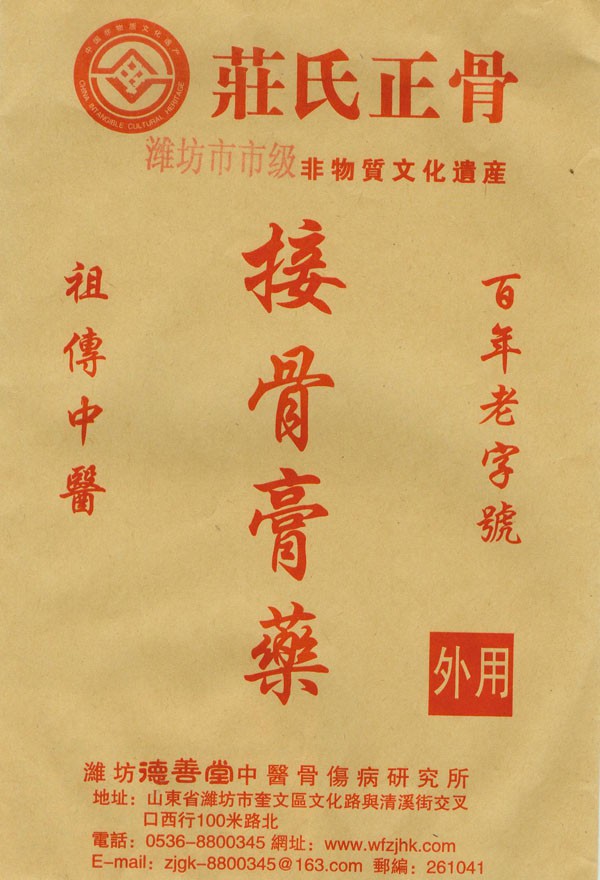 中国非物质文化遗产
CHINA INTANGIBLE CULTURAL HERITAGE
莊氏正骨
潍坊市市级
非物質文化遺産
百年老字號
接骨膏藥
祖傳中醫
外用
濰坊德善堂中醫骨傷病研究所
地址：山東省濰坊市奎文區文化路與清溪街交叉
口西行100米路北
電話：0536-8800345 網址：www.wfzjhk.com
E-mail：zjgk-8800345@163.com 郵編：261041